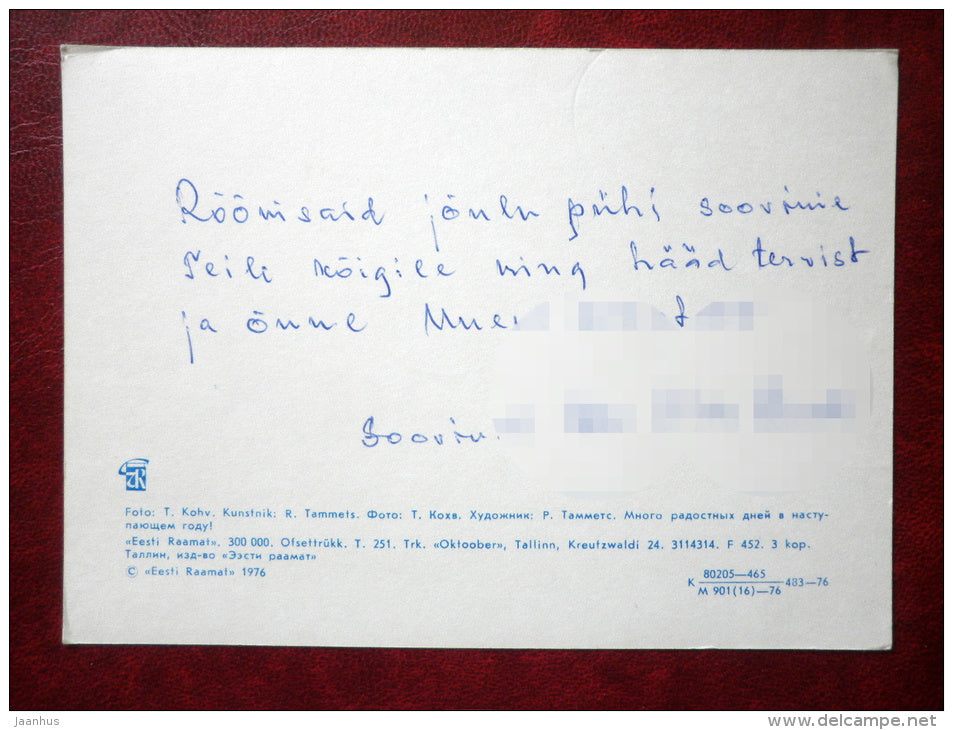 Rõõmsaid jõulu pühi soovime
Teile kõigile ning hääd tervist
ja õnne
Foto: T. Kohv. Kunstnik: R. Tammets. Фото: Т. Кохв. Художник: Р. Тамметс. Много радостных дней в насту-
пающем году!
«Eesti Raamat». 300 000. Ofsettrükk. T. 251. Trk. «Oktoober», Tallinn, Kreutzwaldi 24. 3114314. F 452. 3 kop.
Таллин, изд-во «Ээсти раамат»
© «Eesti Raamat» 1976
К 80205—465 483—76
М 901(16)—76
Jaanhus
www.delcampe.net